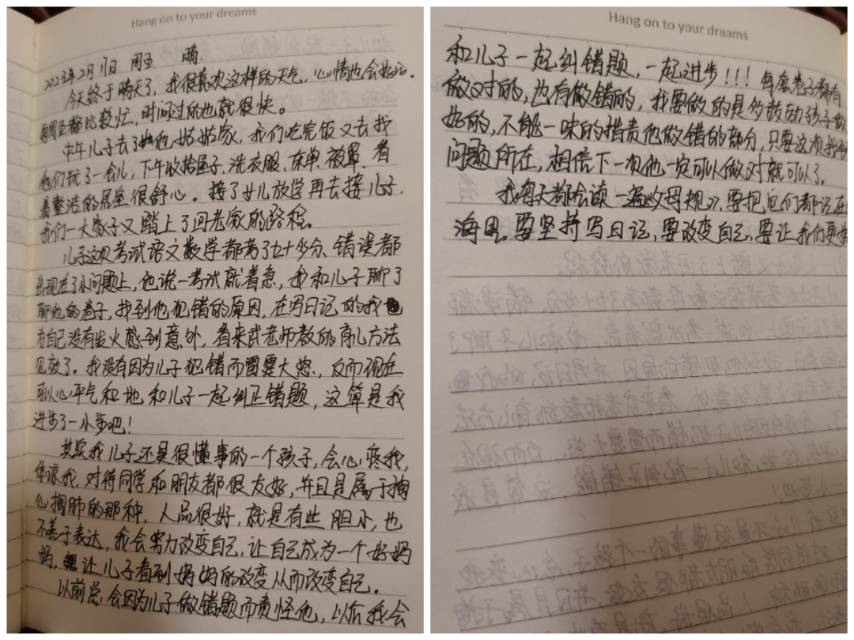 Hang on to your dreams
2023年2月17日 周五 晴
今天终于晴天了,我很喜欢这样的天气,心情也会
每周五都比较忙,时间过的也就很快。
中午儿子去了他姑姑家,我们吃完饭又去找
他们玩了一会儿,下午收拾屋子、洗衣服、床单、被罩,看
着整洁的屋里很舒心。接了女儿放学再去接儿子,
我们一大家子又踏上了回老家的路程。
儿子这次考试语文数学都考了七十多分,错误都
出现在了小问题上,他说一考试就着急,我和儿子聊了
聊他的卷子,找到他犯错的原因,在写日记的我
为自己没有发火感到意外,看来武老师教的育儿方法
见效了。我没有因为儿子犯错而雷霆大怒,反而现在
可以心平气和地和儿子一起纠正错题,这算是我
进步了一小步吧!
其实我儿子还是很懂事的一个孩子,会心疼我,
体谅我,对待同学和朋友都很友好,并且是属于掏
心掏肺的那种,人品很好,就是有些胆小,也
不善于表达,我会努力改变自己,让自己成为一个好妈
妈,让儿子看到妈妈的改变从而改变自己。
以前总会因为儿子做错题而责怪他,以后我会
Hang on to your dreams
和儿子一起纠错题,一起进步!!!每套卷子都有
做对的,也有做错的,我要做的是多鼓励孩子做
好的,不能一味的指责他做错的部分,只要这次找到
问题所在,相信下一次他一定可以做对就可以了。
我每天都会读一遍父母规⟩,要把它们都记在
海里。要坚持写日记,要改变自己,要让我们更